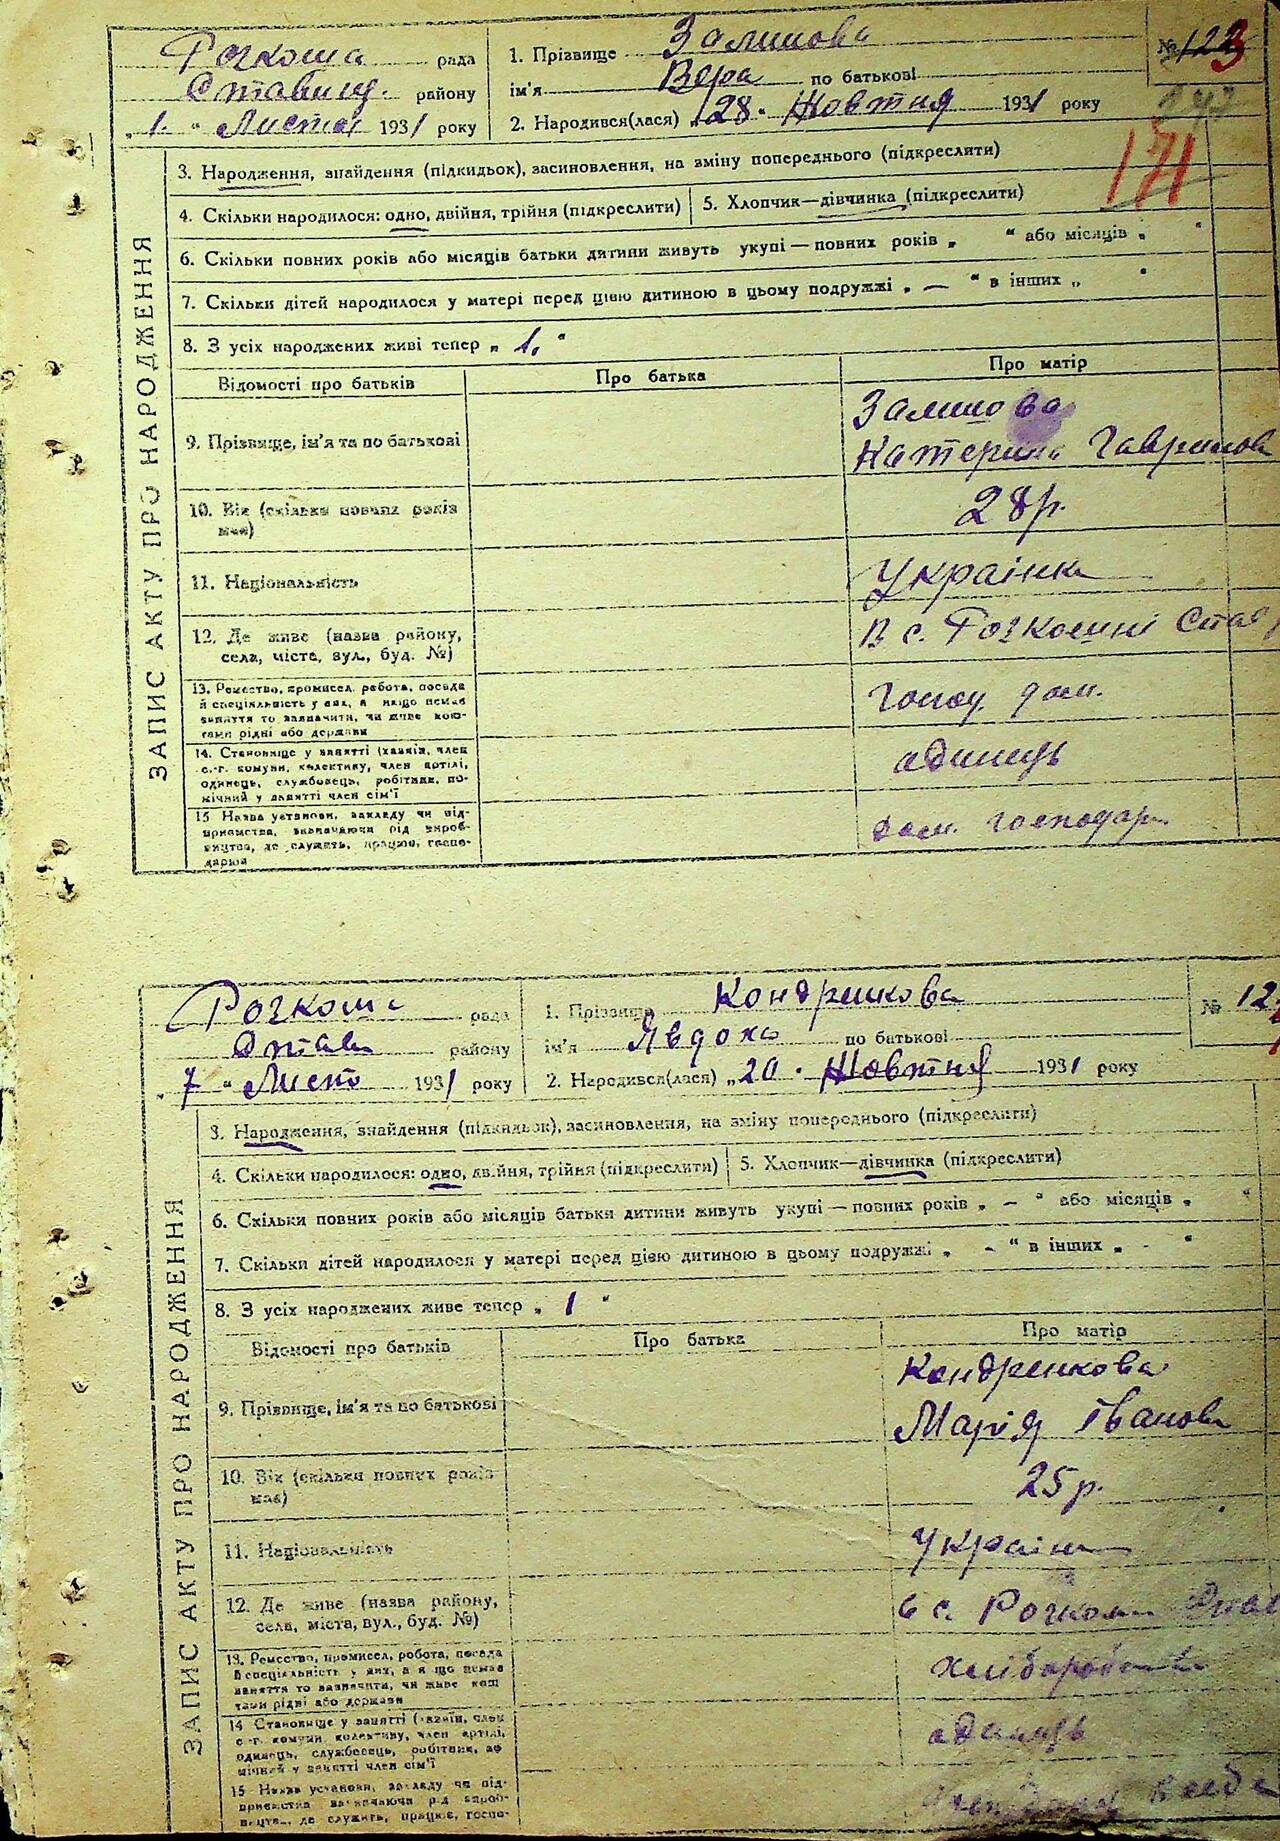 Розкоша рада
Ставищ. районy
„ 1. " Листоп 1931 року
1. Прізвище Залишова
ім'я Вера по батькові
2. Народився(лася) „ 28 " Жовтня 1931 року
№ 123
171
ЗАПИС АКТУ ПРО НАРОДЖЕННЯ
3. Народження, знайдення (підкидьок), засиновлення, на зміну попереднього (підкреслити)
4. Скільки народилося: одно, двійня, трійня (підкреслити)
5. Хлопчик—дівчинка (підкреслити)
6. Скільки повних років або місяців батьки дитини живуть укупі — повних років „ " або місяців „ "
7. Скільки дітей народилося у матері перед цією дитиною в цьому подружжі „ — " в інших „ "
8. З усіх народжених живі тепер „ 1. "
Відомості про батьків
Про батька
Про матір
9. Прізвище, ім'я та по батькові
Залишова
Катерина Гаврилова
10. Вік (скільки повних років
має)
28 р.
11. Національність
Українка
12. Де живе (назва району,
села, міста, вул., буд. №)
В с. Розкошні Став
13. Ремество, промисел, робота, посада
й спеціяльність у них, а якщо немає
заняття то зазначити, чи живе кош-
тами рідні або держави
дом.
14. Становище у занятті (хазяїн, член
с.-г. комуни, колективу, член артілі,
одинець, службовець, робітник, по-
мічний у занятті член сім'ї
одинець
15 Назва установи, закладу чи під-
приємства, зазначаючи рід вироб-
ництва, де служить, працює, госпо-
дарює
дом. господар.
Розкоша рада
Став району
„ 7 " Листо 1931 року
1. Прізвище Кондренкова
ім'я Явдоха по батькові
2. Народився(лася) „ 20 " Жовтня 1931 року
№ 12
ЗАПИС АКТУ ПРО НАРОДЖЕННЯ
3. Народження, знайдення (підкидьок), засиновлення, на зміну попереднього (підкреслити)
4. Скільки народилося: одно, двійня, трійня (підкреслити)
5. Хлопчик—дівчинка (підкреслити)
6. Скільки повних років або місяців батьки дитини живуть укупі — повних років „ — " або місяців „ "
7. Скільки дітей народилося у матері перед цією дитиною в цьому подружжі „ - " в інших „ - "
8. З усіх народжених живе тепер „ 1 "
Відомості про батьків
Про батька
Про матір
9. Прізвище, ім'я та по батькові
Кондренкова
Марія Іванова
10. Вік (скільки повних років
має)
25 р.
11. Національність
Україн
12. Де живе (назва району,
села, міста, вул., буд. №)
в с. Розкош Став
13. Ремество, промисел, робота, посада
й спеціяльність у них, а якщо немає
заняття то зазначити, чи живе кош
тами рідні або держави
хліборобств
14 Становище у занятті (хазяїн, член
с-г. комуни, колективу, член артілі,
одинець, службовець, робітник, по
мічний у занятті член сім'ї
одинець
15 Назва установи, закладу чи під-
приємства зазначаючи рід вироб-
ництва, де служить, працює, госпо-